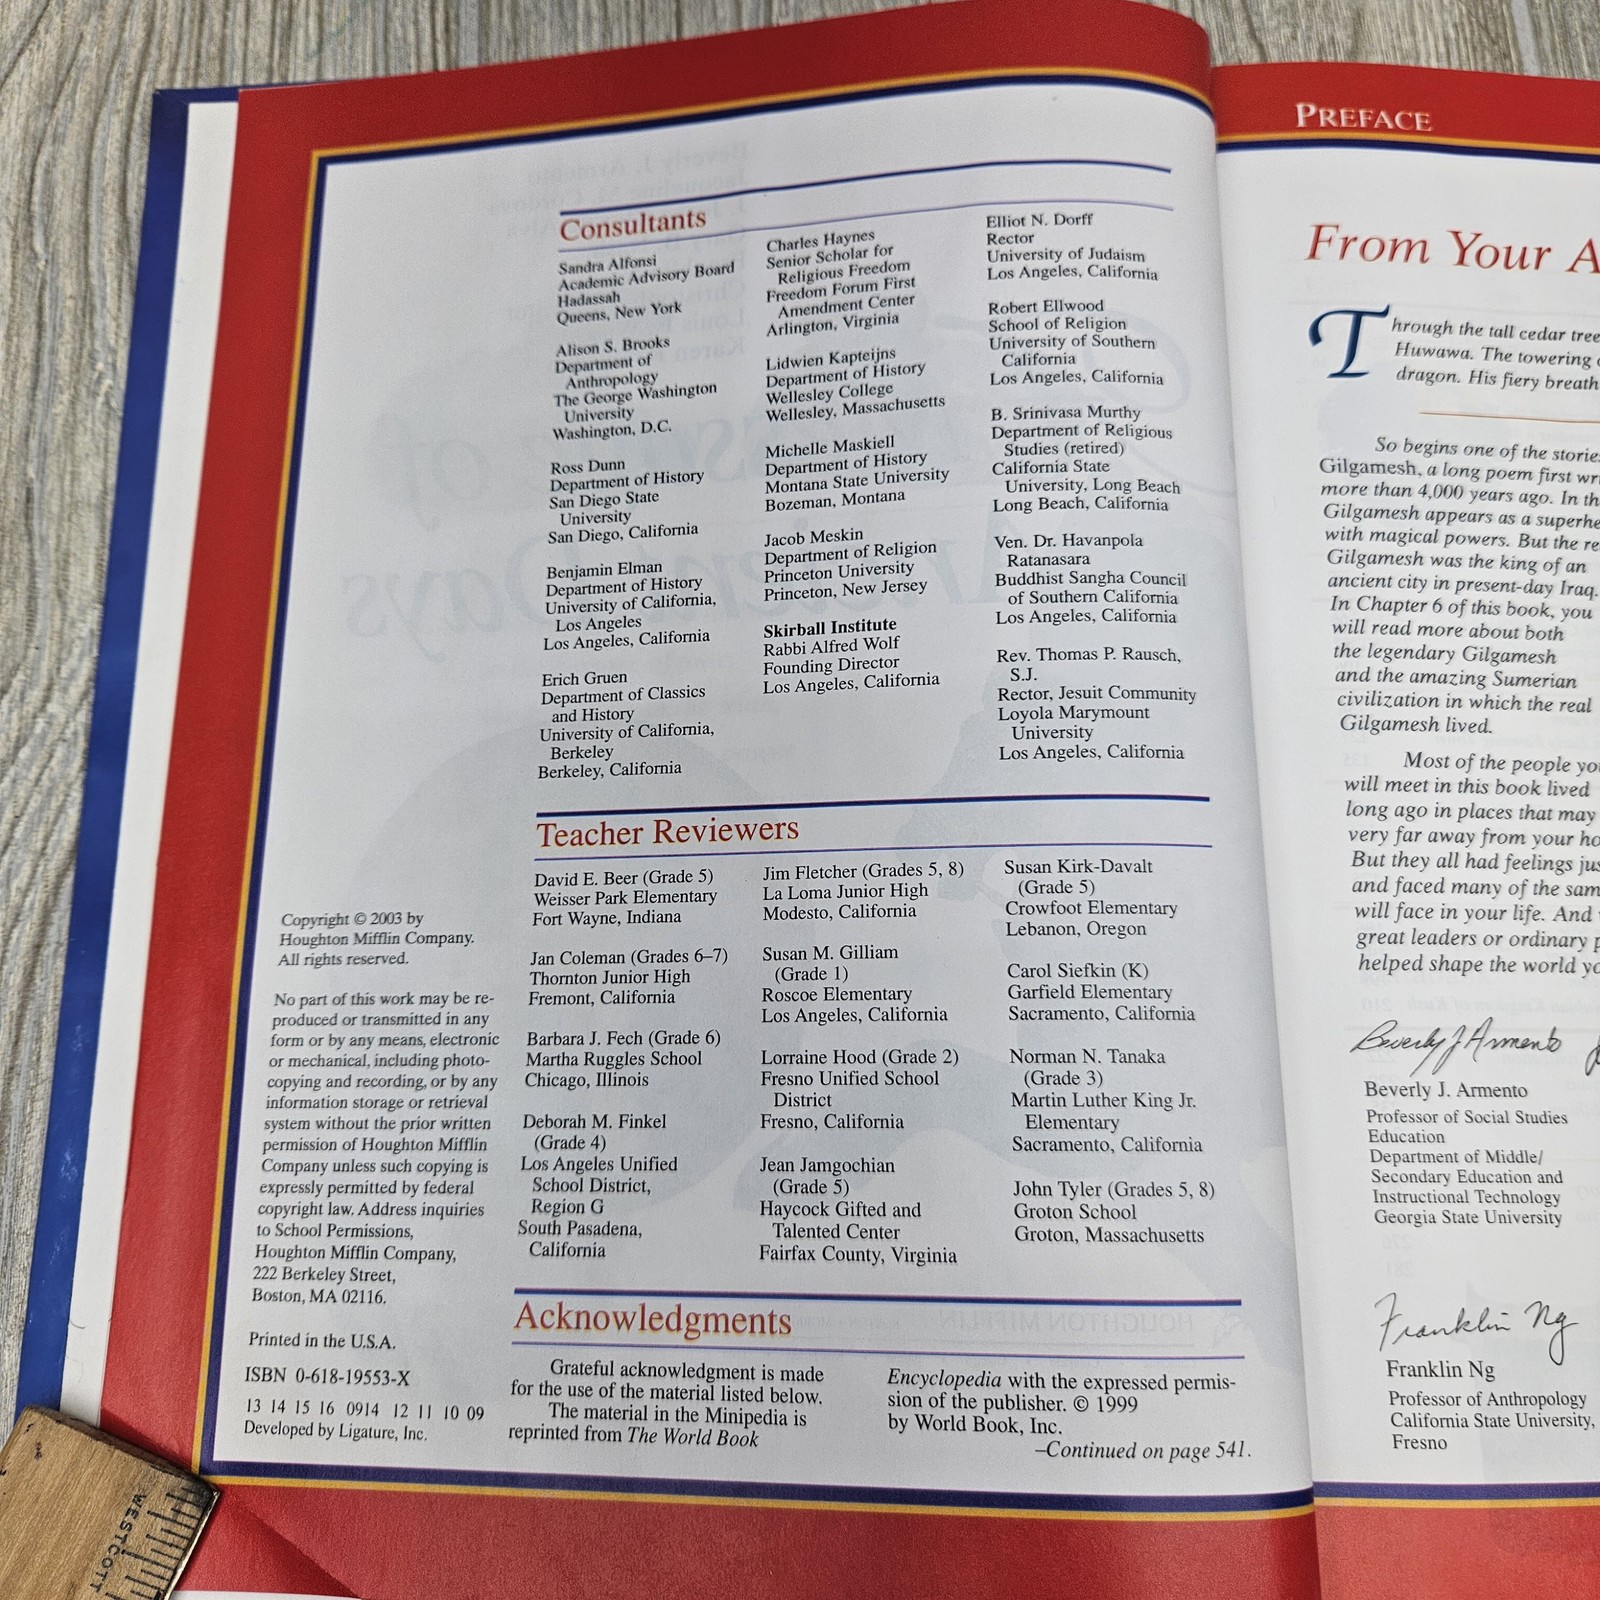 Consultants
Sandra Alfonsi
Academic Advisory Board
Hadassah
Queens, New York
Alison S. Brooks
Department of
Anthropology
The George Washington
University
Washington, D.C.
Ross Dunn
Department of History
San Diego State
University
San Diego, California
Benjamin Elman
Department of History
University of California,
Los Angeles
Los Angeles, California
Erich Gruen
Department of Classics
and History
University of California,
Berkeley
Berkeley, California
Charles Haynes
Senior Scholar for
Religious Freedom
Freedom Forum First
Amendment Center
Arlington, Virginia
Lidwien Kapteijns
Department of History
Wellesley College
Wellesley, Massachusetts
Michelle Maskiell
Department of History
Montana State University
Bozeman, Montana
Jacob Meskin
Department of Religion
Princeton University
Princeton, New Jersey
Skirball Institute
Rabbi Alfred Wolf
Founding Director
Los Angeles, California
Elliot N. Dorff
Rector
University of Judaism
Los Angeles, California
Robert Ellwood
School of Religion
University of Southern
California
Los Angeles, California
B. Srinivasa Murthy
Department of Religious
Studies (retired)
California State
University, Long Beach
Long Beach, California
Ven. Dr. Havanpola
Ratanasara
Buddhist Sangha Council
of Southern California
Los Angeles, California
Rev. Thomas P. Rausch,
S.J.
Rector, Jesuit Community
Loyola Marymount
University
Los Angeles, California
Teacher Reviewers
David E. Beer (Grade 5)
Weisser Park Elementary
Fort Wayne, Indiana
Jan Coleman (Grades 6–7)
Thornton Junior High
Fremont, California
Barbara J. Fech (Grade 6)
Martha Ruggles School
Chicago, Illinois
Deborah M. Finkel
(Grade 4)
Los Angeles Unified
School District,
Region G
South Pasadena,
California
Jim Fletcher (Grades 5, 8)
La Loma Junior High
Modesto, California
Susan M. Gilliam
(Grade 1)
Roscoe Elementary
Los Angeles, California
Lorraine Hood (Grade 2)
Fresno Unified School
District
Fresno, California
Jean Jamgochian
(Grade 5)
Haycock Gifted and
Talented Center
Fairfax County, Virginia
Susan Kirk-Davalt
(Grade 5)
Crowfoot Elementary
Lebanon, Oregon
Carol Siefkin (K)
Garfield Elementary
Sacramento, California
Norman N. Tanaka
(Grade 3)
Martin Luther King Jr.
Elementary
Sacramento, California
John Tyler (Grades 5, 8)
Groton School
Groton, Massachusetts
Copyright © 2003 by
Houghton Mifflin Company.
All rights reserved.
No part of this work may be re-
produced or transmitted in any
form or by any means, electronic
or mechanical, including photo-
copying and recording, or by any
information storage or retrieval
system without the prior written
permission of Houghton Mifflin
Company unless such copying is
expressly permitted by federal
copyright law. Address inquiries
to School Permissions,
Houghton Mifflin Company,
222 Berkeley Street,
Boston, MA 02116.
Printed in the U.S.A.
ISBN 0-618-19553-X
13 14 15 16 0914 12 11 10 09
Developed by Ligature, Inc.
Acknowledgments
Grateful acknowledgment is made
for the use of the material listed below.
The material in the Minipedia is
reprinted from The World Book
Encyclopedia with the expressed permis-
sion of the publisher. © 1999
by World Book, Inc.
–Continued on page 541.
WESTCOTT
PREFACE
From Your A
Through the tall cedar tree
Huwawa. The towering
dragon. His fiery breath
So begins one of the storie
Gilgamesh, a long poem first wri
more than 4,000 years ago. In th
Gilgamesh appears as a superhe
with magical powers. But the re
Gilgamesh was the king of an
ancient city in present-day Iraq.
In Chapter 6 of this book, you
will read more about both
the legendary Gilgamesh
and the amazing Sumerian
civilization in which the real
Gilgamesh lived.
Most of the people you
will meet in this book lived
long ago in places that may
very far away from your ho
But they all had feelings jus
and faced many of the sam
will face in your life. And
great leaders or ordinary p
helped shape the world yo
Beverly J Armento
Beverly J. Armento
Professor of Social Studies
Education
Department of Middle/
Secondary Education and
Instructional Technology
Georgia State University
Franklin Ng
Franklin Ng
Professor of Anthropology
California State University,
Fresno